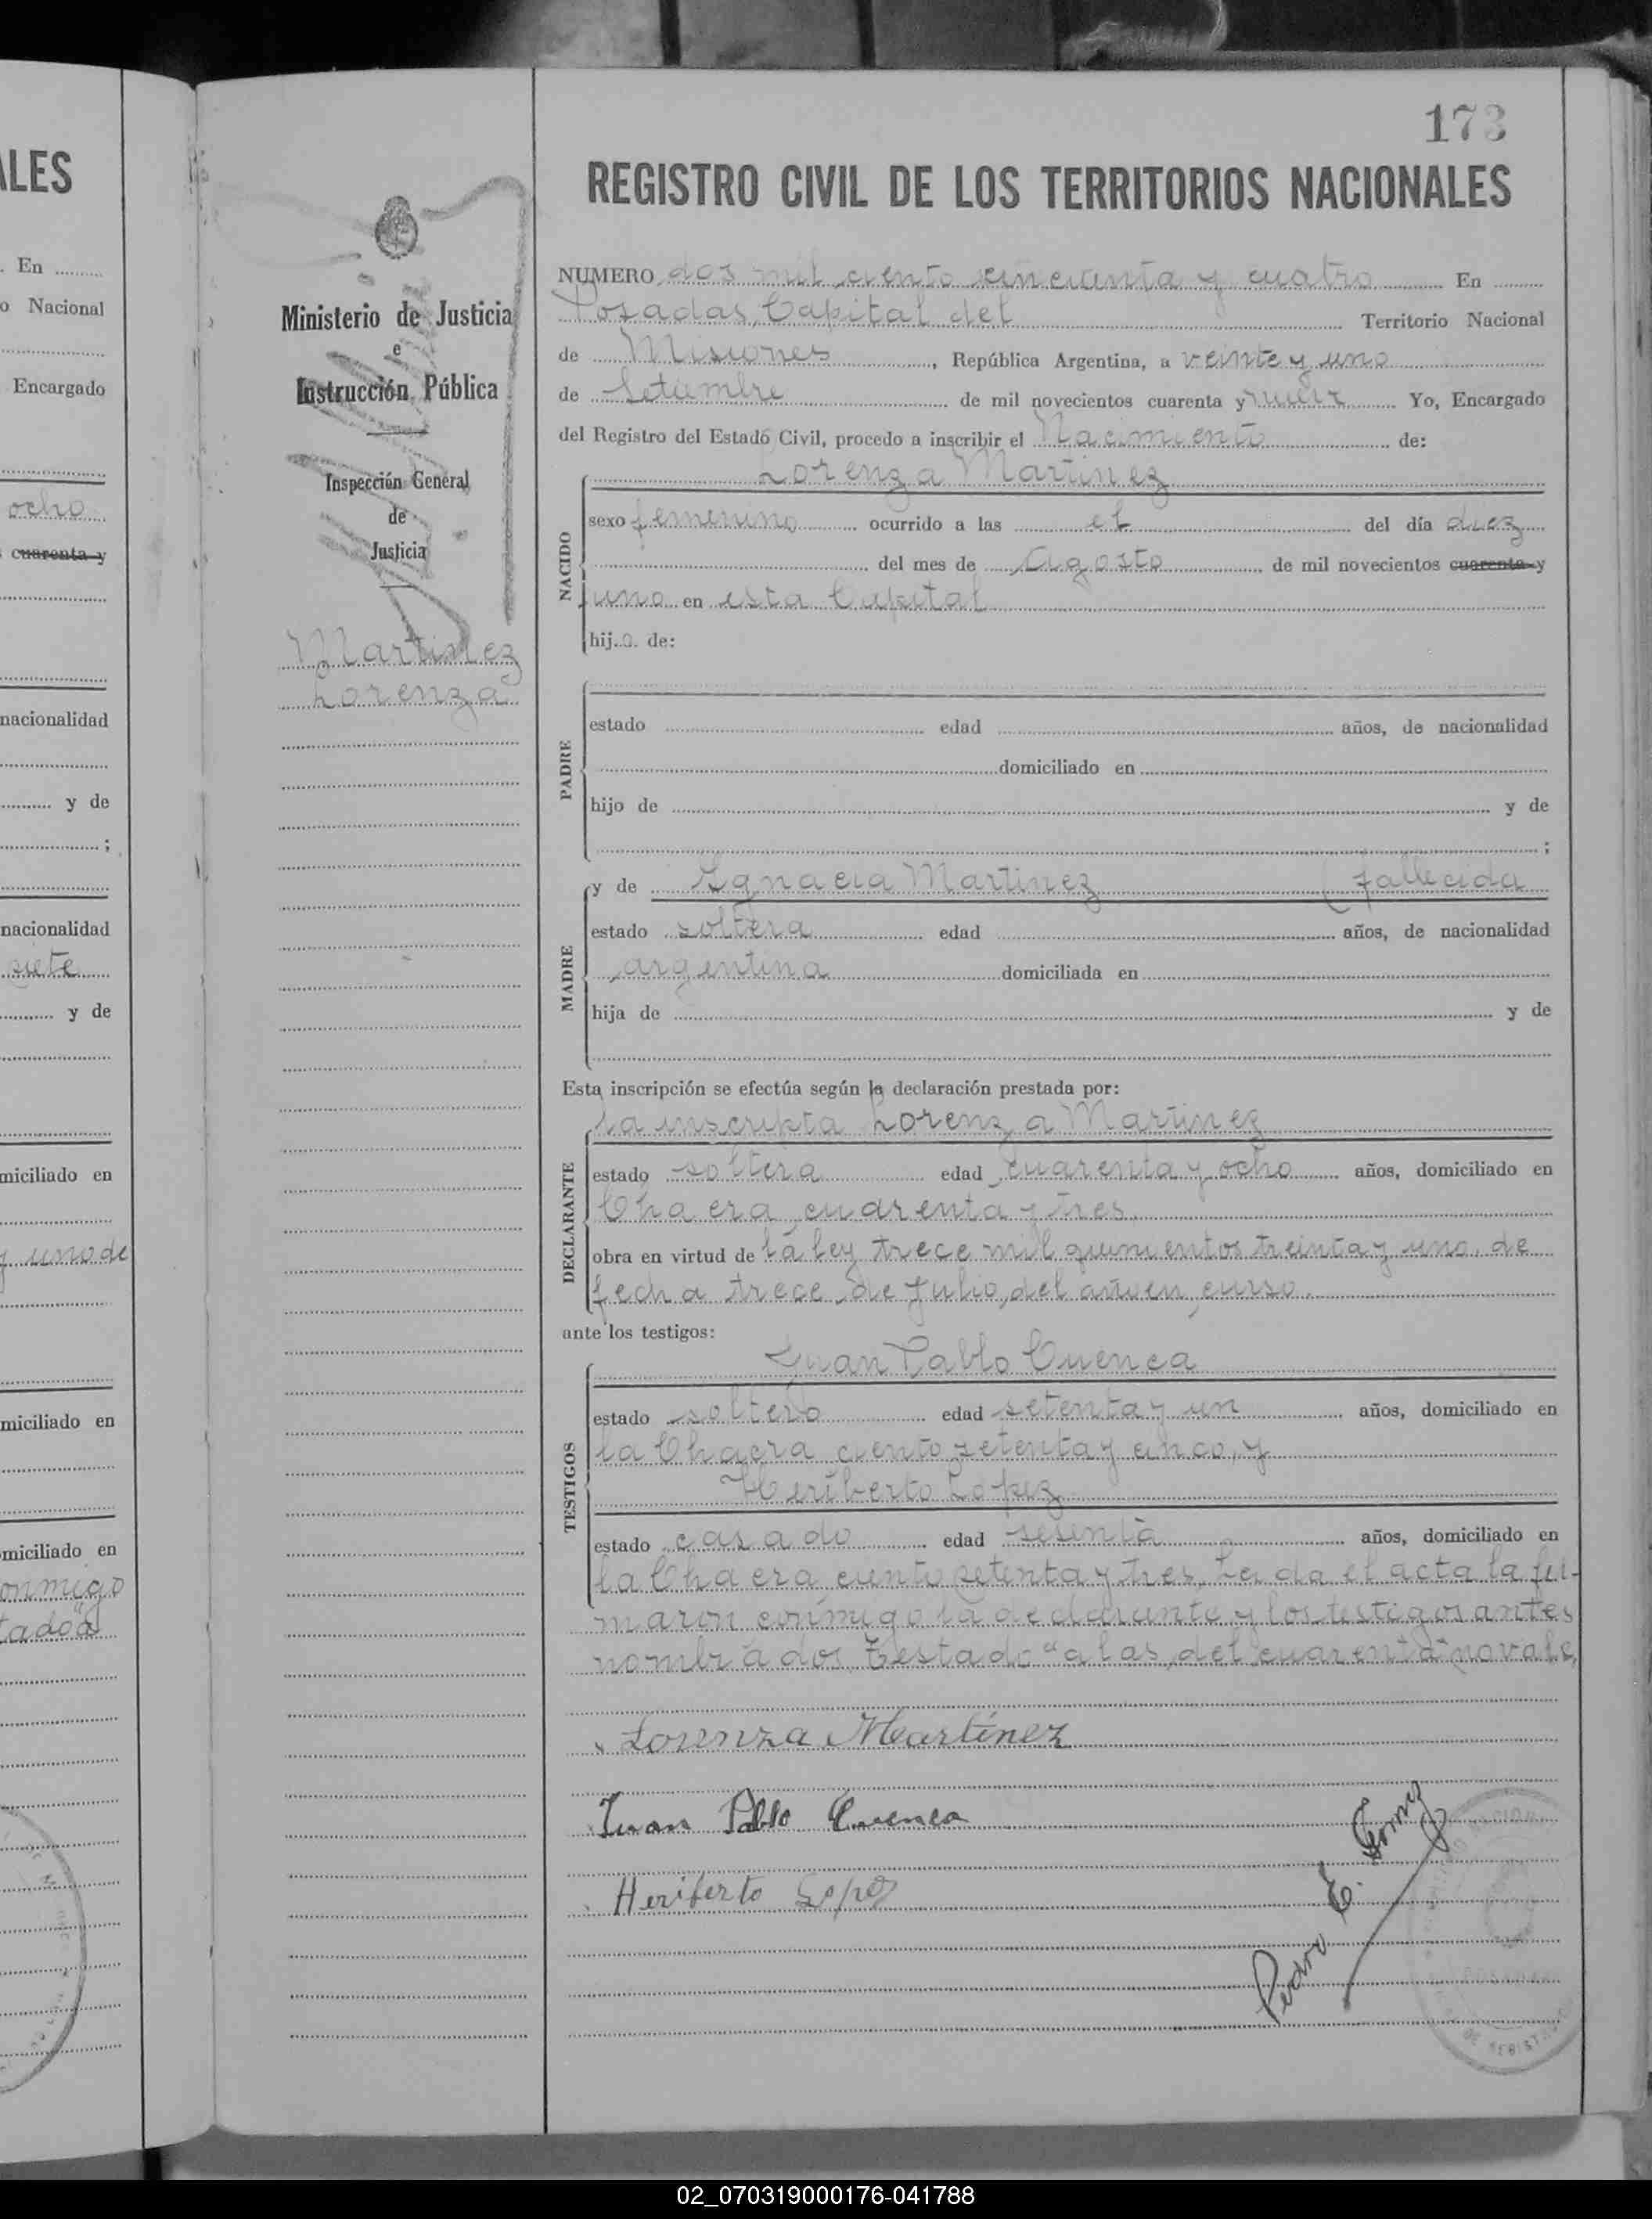 173
REGISTRO CIVIL DE LOS TERRITORIOS NACIONALES
NUMERO dos mil ciento cincuenta y cuatro En
Posadas, Capital del Territorio Nacional
de Misiones, República Argentina, a veinte y uno
de Setiembre de mil novecientos cuarenta y nueve Yo, Encargado
del Registro del Estado Civil, procedo a inscribir el Nacimiento de:
Lorenza Martinez
NACIDO
sexo femenino ocurrido a las el del día diez
del mes de Agosto de mil novecientos cuarenta y
uno en esta Capital
hija de:
PADRE
estado edad años, de nacionalidad
domiciliado en
hijo de y de
;
MADRE
y de Ignacia Martinez (fallecida
estado soltera edad años, de nacionalidad
argentina domiciliada en
hija de y de
Esta inscripción se efectúa según la declaración prestada por:
DECLARANTE
la inscripta Lorenza Martinez
estado soltera edad cuarenta y ocho años, domiciliado en
Chacra cuarenta y tres
obra en virtud de la ley trece mil quinientos treinta y uno, de
fecha trece de Julio, del año en curso
ante los testigos:
TESTIGOS
Juan Pablo Cuenca
estado soltero edad setenta y un años, domiciliado en
la Chacra ciento setenta y cinco, y
Heriberto Lopez
estado casado edad sesenta años, domiciliado en
la Chacra ciento setenta y tres. Leida el acta la fir-
maron conmigo la declarante y los testigos antes
nombrados. Testado "a las, del cuarenta" no vale,
Lorenza Martínez
Juan Pablo Cuenca
Heriberto Lopez
Pedro E.
Ministerio de Justicia
e
Instrucción Pública
Inspección General
de
Justicia
Martinez
Lorenza
ALES
En
o Nacional
Encargado
ocho
cuarenta y
nacionalidad
y de
;
nacionalidad
siete
y de
miciliado en
y uno de
miciliado en
miciliado en
onmigo
tado "a
02_070319000176-041788